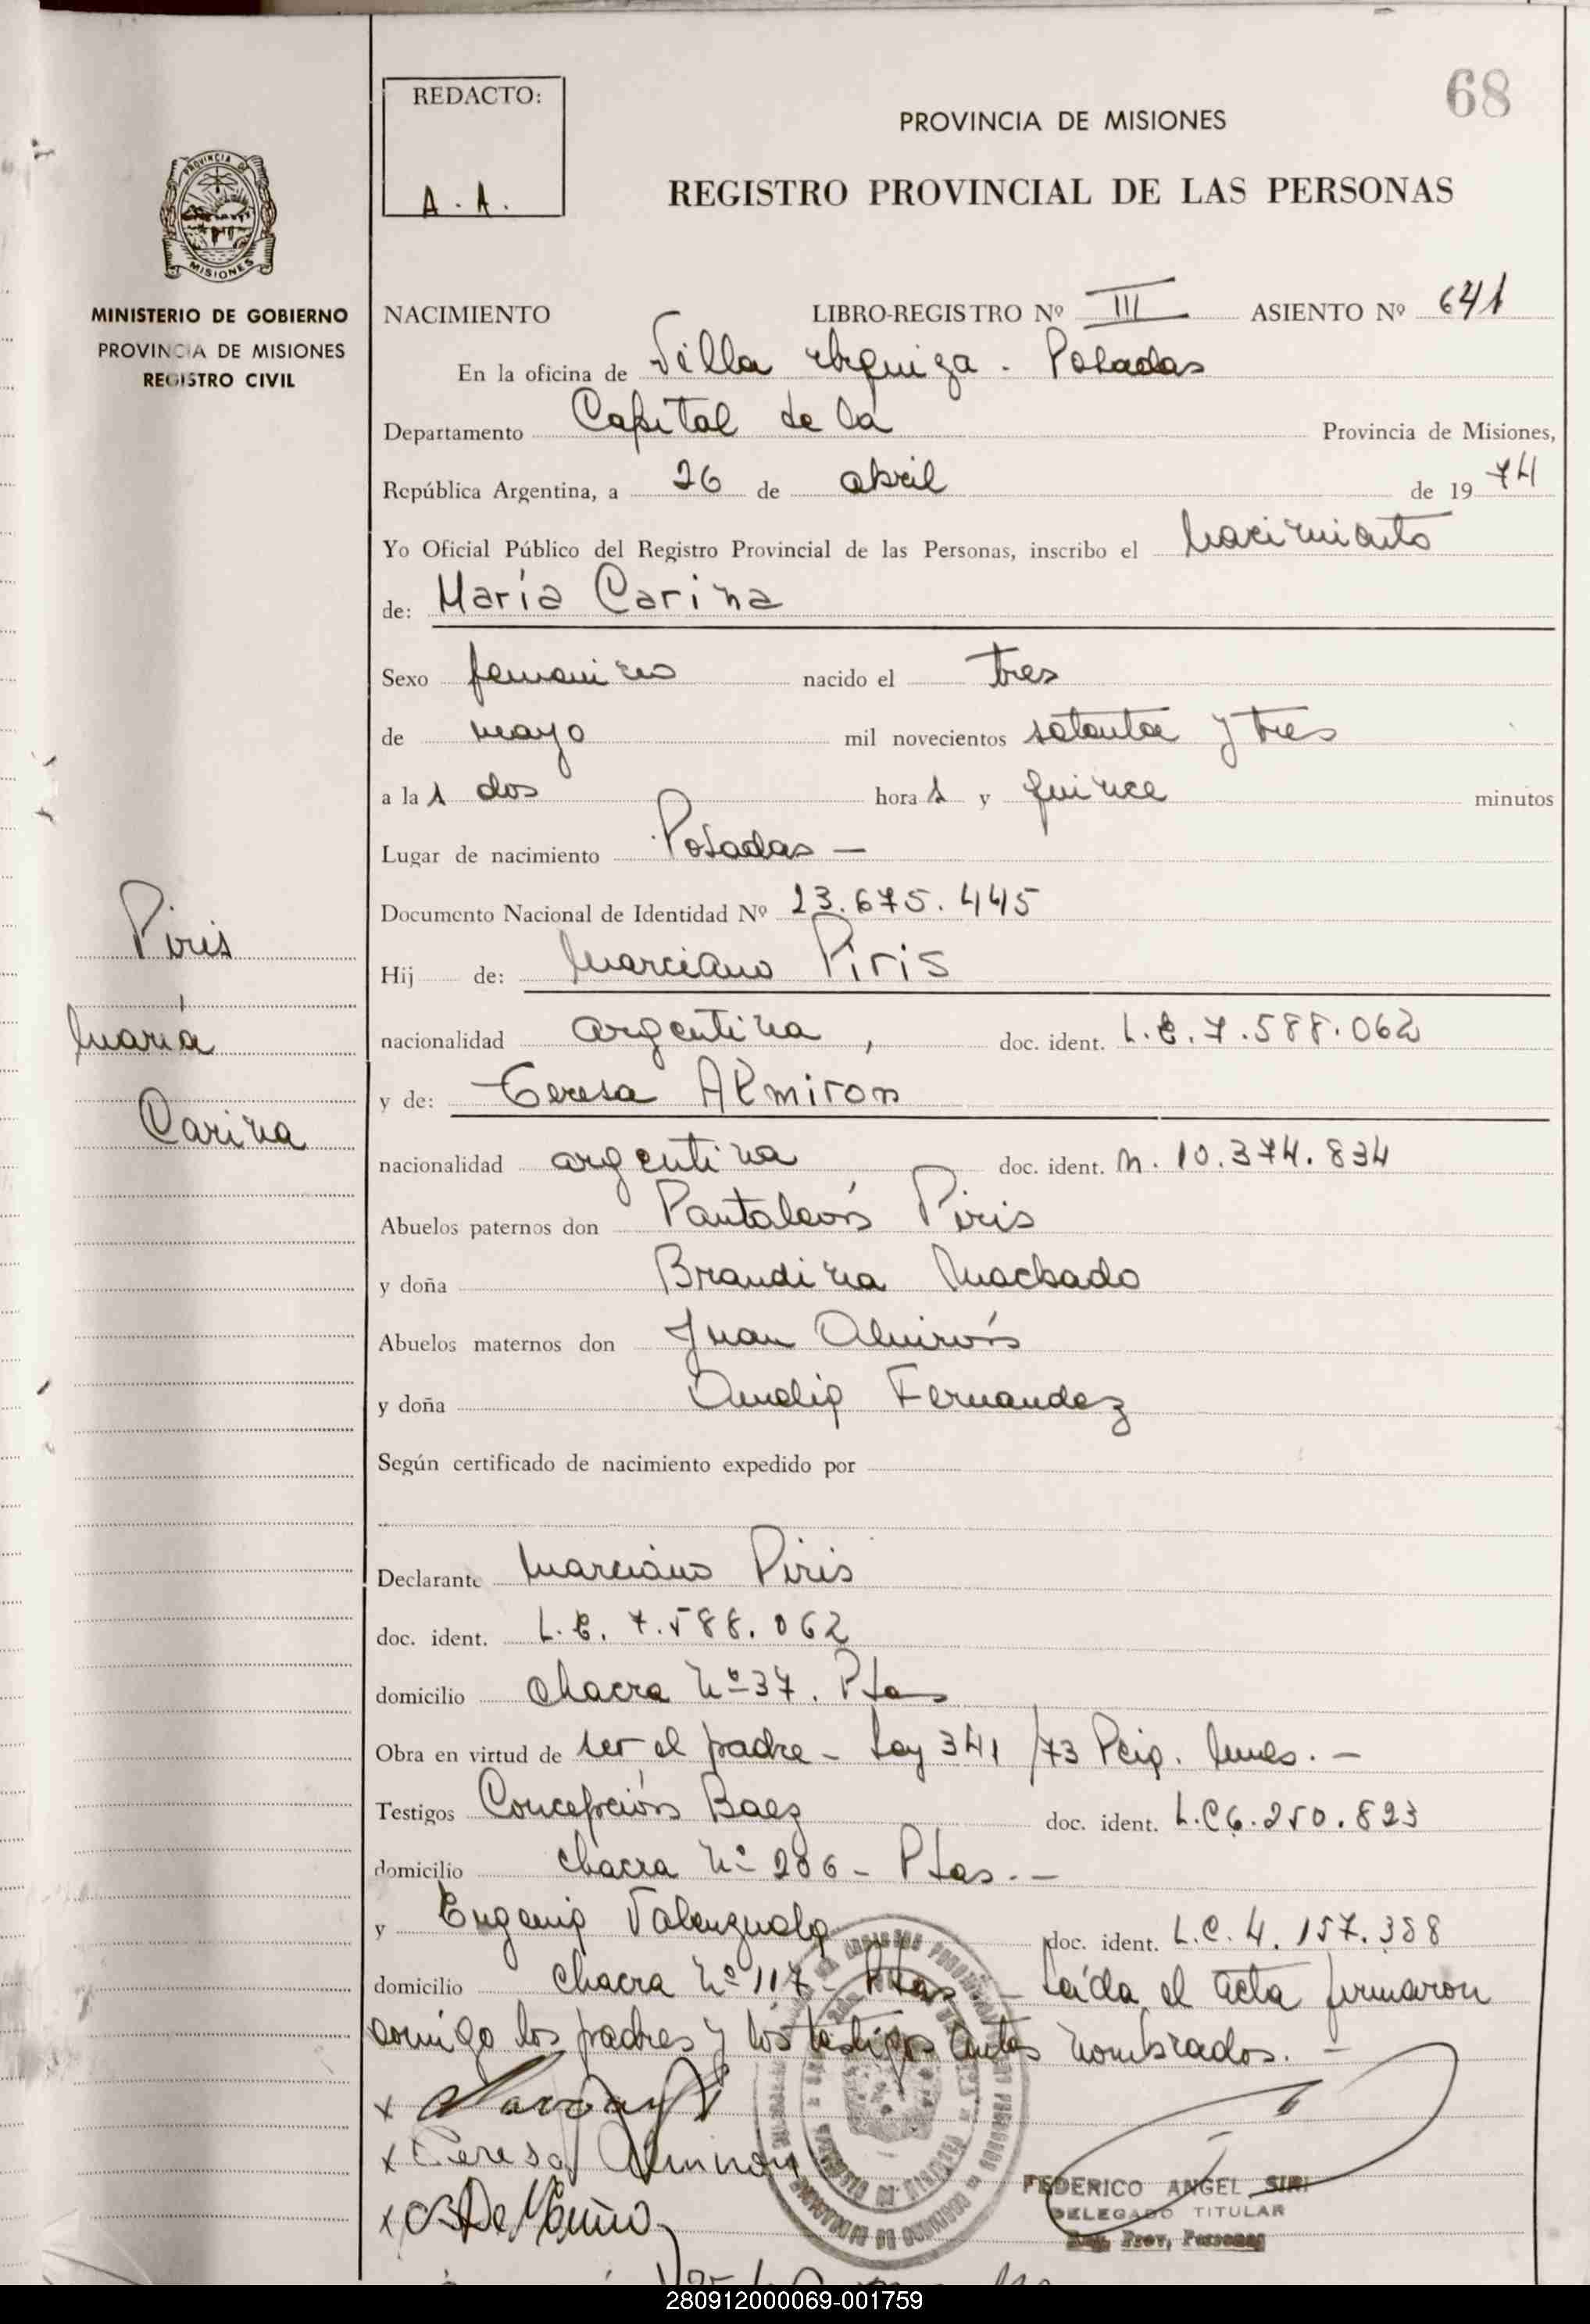 68
REDACTO:
A. A.
PROVINCIA DE MISIONES
REGISTRO PROVINCIAL DE LAS PERSONAS
PROVINCIA DE
MISIONES
MINISTERIO DE GOBIERNO
PROVINCIA DE MISIONES
REGISTRO CIVIL
NACIMIENTO LIBRO-REGISTRO Nº III ASIENTO Nº 641
En la oficina de Villa Urquiza - Posadas
Departamento Capital de la Provincia de Misiones,
República Argentina, a 26 de abril de 1974
Yo Oficial Público del Registro Provincial de las Personas, inscribo el Nacimiento
de: María Carina
Sexo femenino nacido el tres
de mayo mil novecientos setenta y tres
a la s dos hora s y quince minutos
Lugar de nacimiento Posadas —
Documento Nacional de Identidad Nº 23.675.445
Hij de: Marciano Piris
nacionalidad argentina, doc. ident. L.E. 7.588.062
y de: Teresa Almiron
nacionalidad argentina doc. ident. N. 10.374.834
Abuelos paternos don Pantaleón Piris
y doña Brandina Machado
Abuelos maternos don Juan Almirón
y doña Amelia Fernandez
Según certificado de nacimiento expedido por
Declarante Marciano Piris
doc. ident. L.E. 7.588.062
domicilio chacra Nº 37. Pdas
Obra en virtud de ser el padre - Ley 341/73 Pcia. Mnes. -
Testigos Concepción Baez doc. ident. L.C 6.250.823
domicilio chacra Nº 206 - Pdas. -
y Eugenia Valenzuela doc. ident. L.C. 4.157.388
domicilio chacra Nº 117 - Pdas - Leída el acta firmaron
comigo los padres y los testigos antes nombrados. -
x
x Teresa Almiron
x
FEDERICO ANGEL SIRI
DELEGADO TITULAR
Reg. Prov. Personas
Piris
María
Carina
280912000069-001759